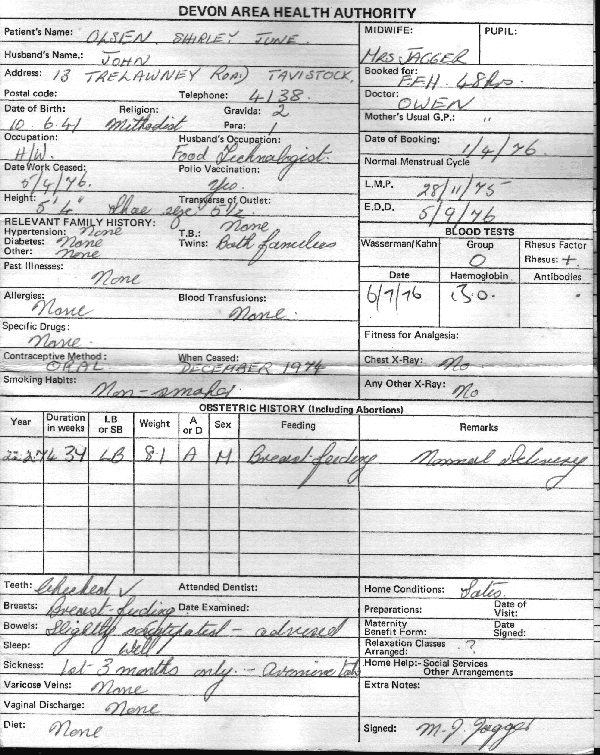 DEVON AREA HEALTH AUTHORITY
Patient's Name: OLSEN. SHIRLEY JUNE.
MIDWIFE: PUPIL:
Husband's Name: JOHN
MRS JAGGER
Address: 13 TRELAWNEY ROAD TAVISTOCK.
Booked for: F.F.H. 48 Hrs.
Postal code: Telephone: 4138.
Doctor: OWEN
Date of Birth: Religion: Gravida: 2
Mother's Usual G.P.: "
10 6.41 Methodist Para: 1
Occupation: Husband's Occupation:
Date of Booking: 1/4/76
H/W. Food Technologist.
Normal Menstrual Cycle
Date Work Ceased: Polio Vaccination:
5/4/76. Yes.
L.M.P. 28/11/75
Height: Transverse of Outlet:
5' 4" Shoe size 5½
E.D.D. 5/9/76
RELEVANT FAMILY HISTORY:
BLOOD TESTS
Hypertension: None T.B.: None
Wasserman/Kahn Group Rhesus Factor
Diabetes: None Twins: Both families
O Rhesus: +
Other: None
Past Illnesses:
Date Haemoglobin Antibodies
None
6/7/76 13.0.
Allergies: Blood Transfusions:
None None.
Specific Drugs:
Fitness for Analgesia:
None.
Contraceptive Method: When Ceased:
Chest X-Ray: No
ORAL DECEMBER 1974
Smoking Habits:
Any Other X-Ray: No
Non-smoker
OBSTETRIC HISTORY (Including Abortions)
Year Duration in weeks LB or SB Weight A or D Sex Feeding Remarks
LB 8.1 A M Breast feeding Normal delivery
Teeth: Checked ✓ Attended Dentist:
Home Conditions: Satis.
Breasts: Breast-feeding Date Examined:
Preparations: Date of Visit:
Bowels: Slightly constipated - advised
Maternity Benefit Form: Date Signed:
Sleep: Well
Relaxation Classes Arranged: ?
Sickness: 1st 3 months only. - Avomine tabs
Home Help:- Social Services
Other Arrangements
Varicose Veins: None
Extra Notes:
Vaginal Discharge: None
Diet: None
Signed: M. J. Jagger